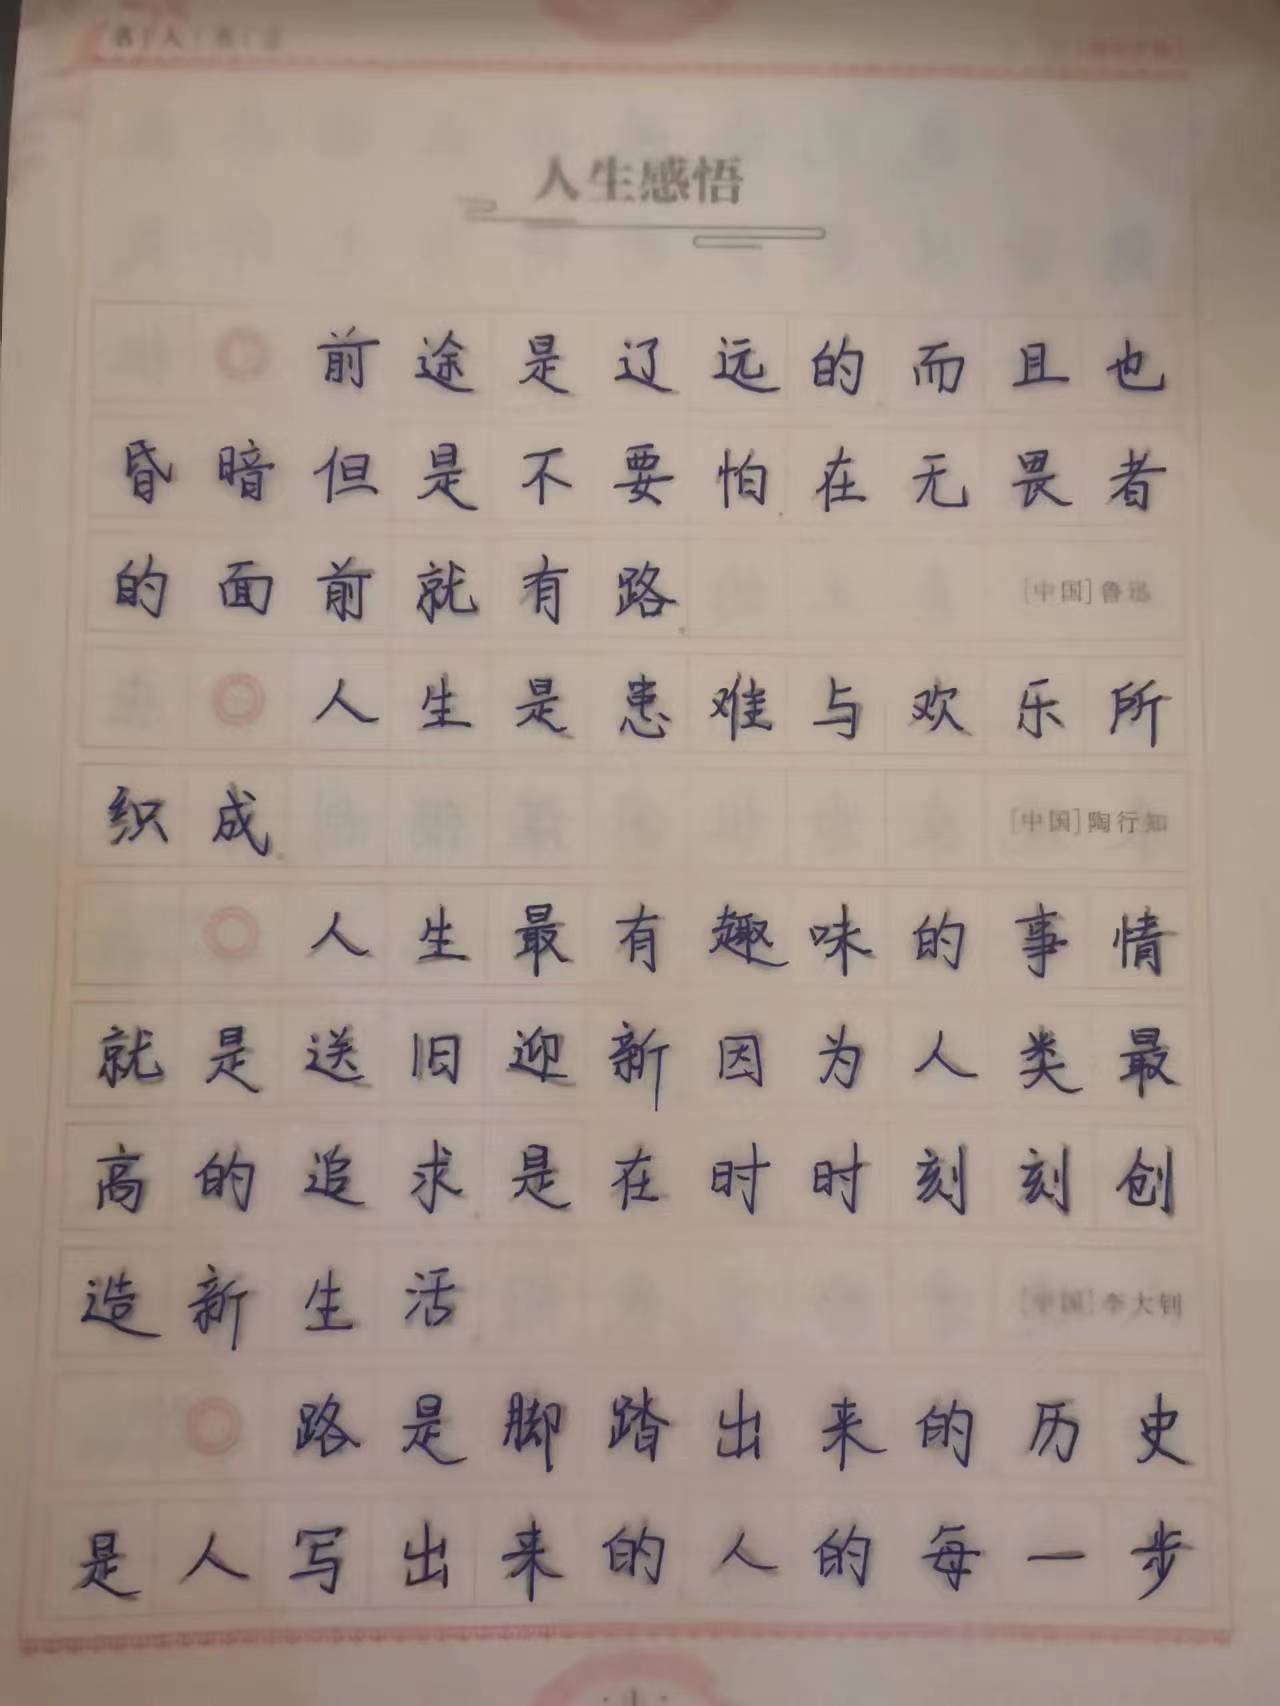 名人名言
人生感悟
前途是辽远的而且也
昏暗但是不要怕在无畏者
的面前就有路
[中国]鲁迅
人生是患难与欢乐所
织成
[中国]陶行知
人生最有趣味的事情
就是送旧迎新因为人类最
高的追求是在时时刻刻创
造新生活
[中国]李大钊
路是脚踏出来的历史
是人写出来的人的每一步